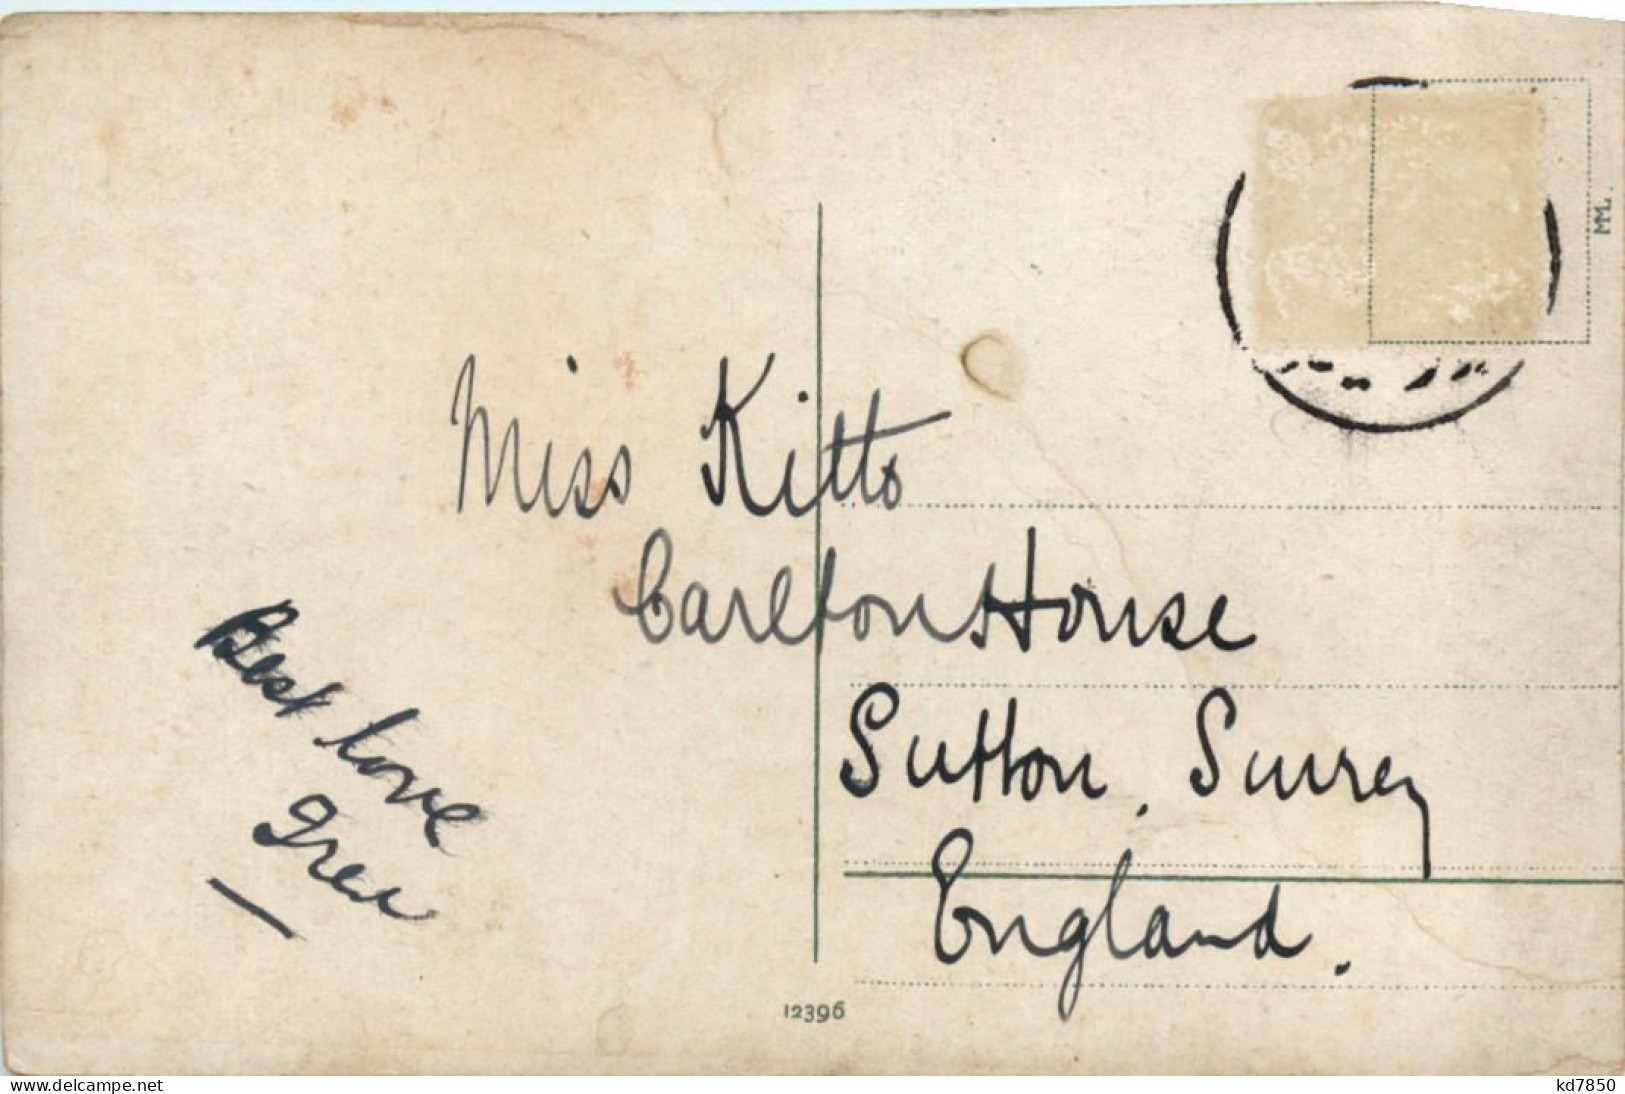 Miss Kitto
Carlton House
Sutton, Surrey
England.
Best love
MM.
12396
www.delcampe.net
kd7850